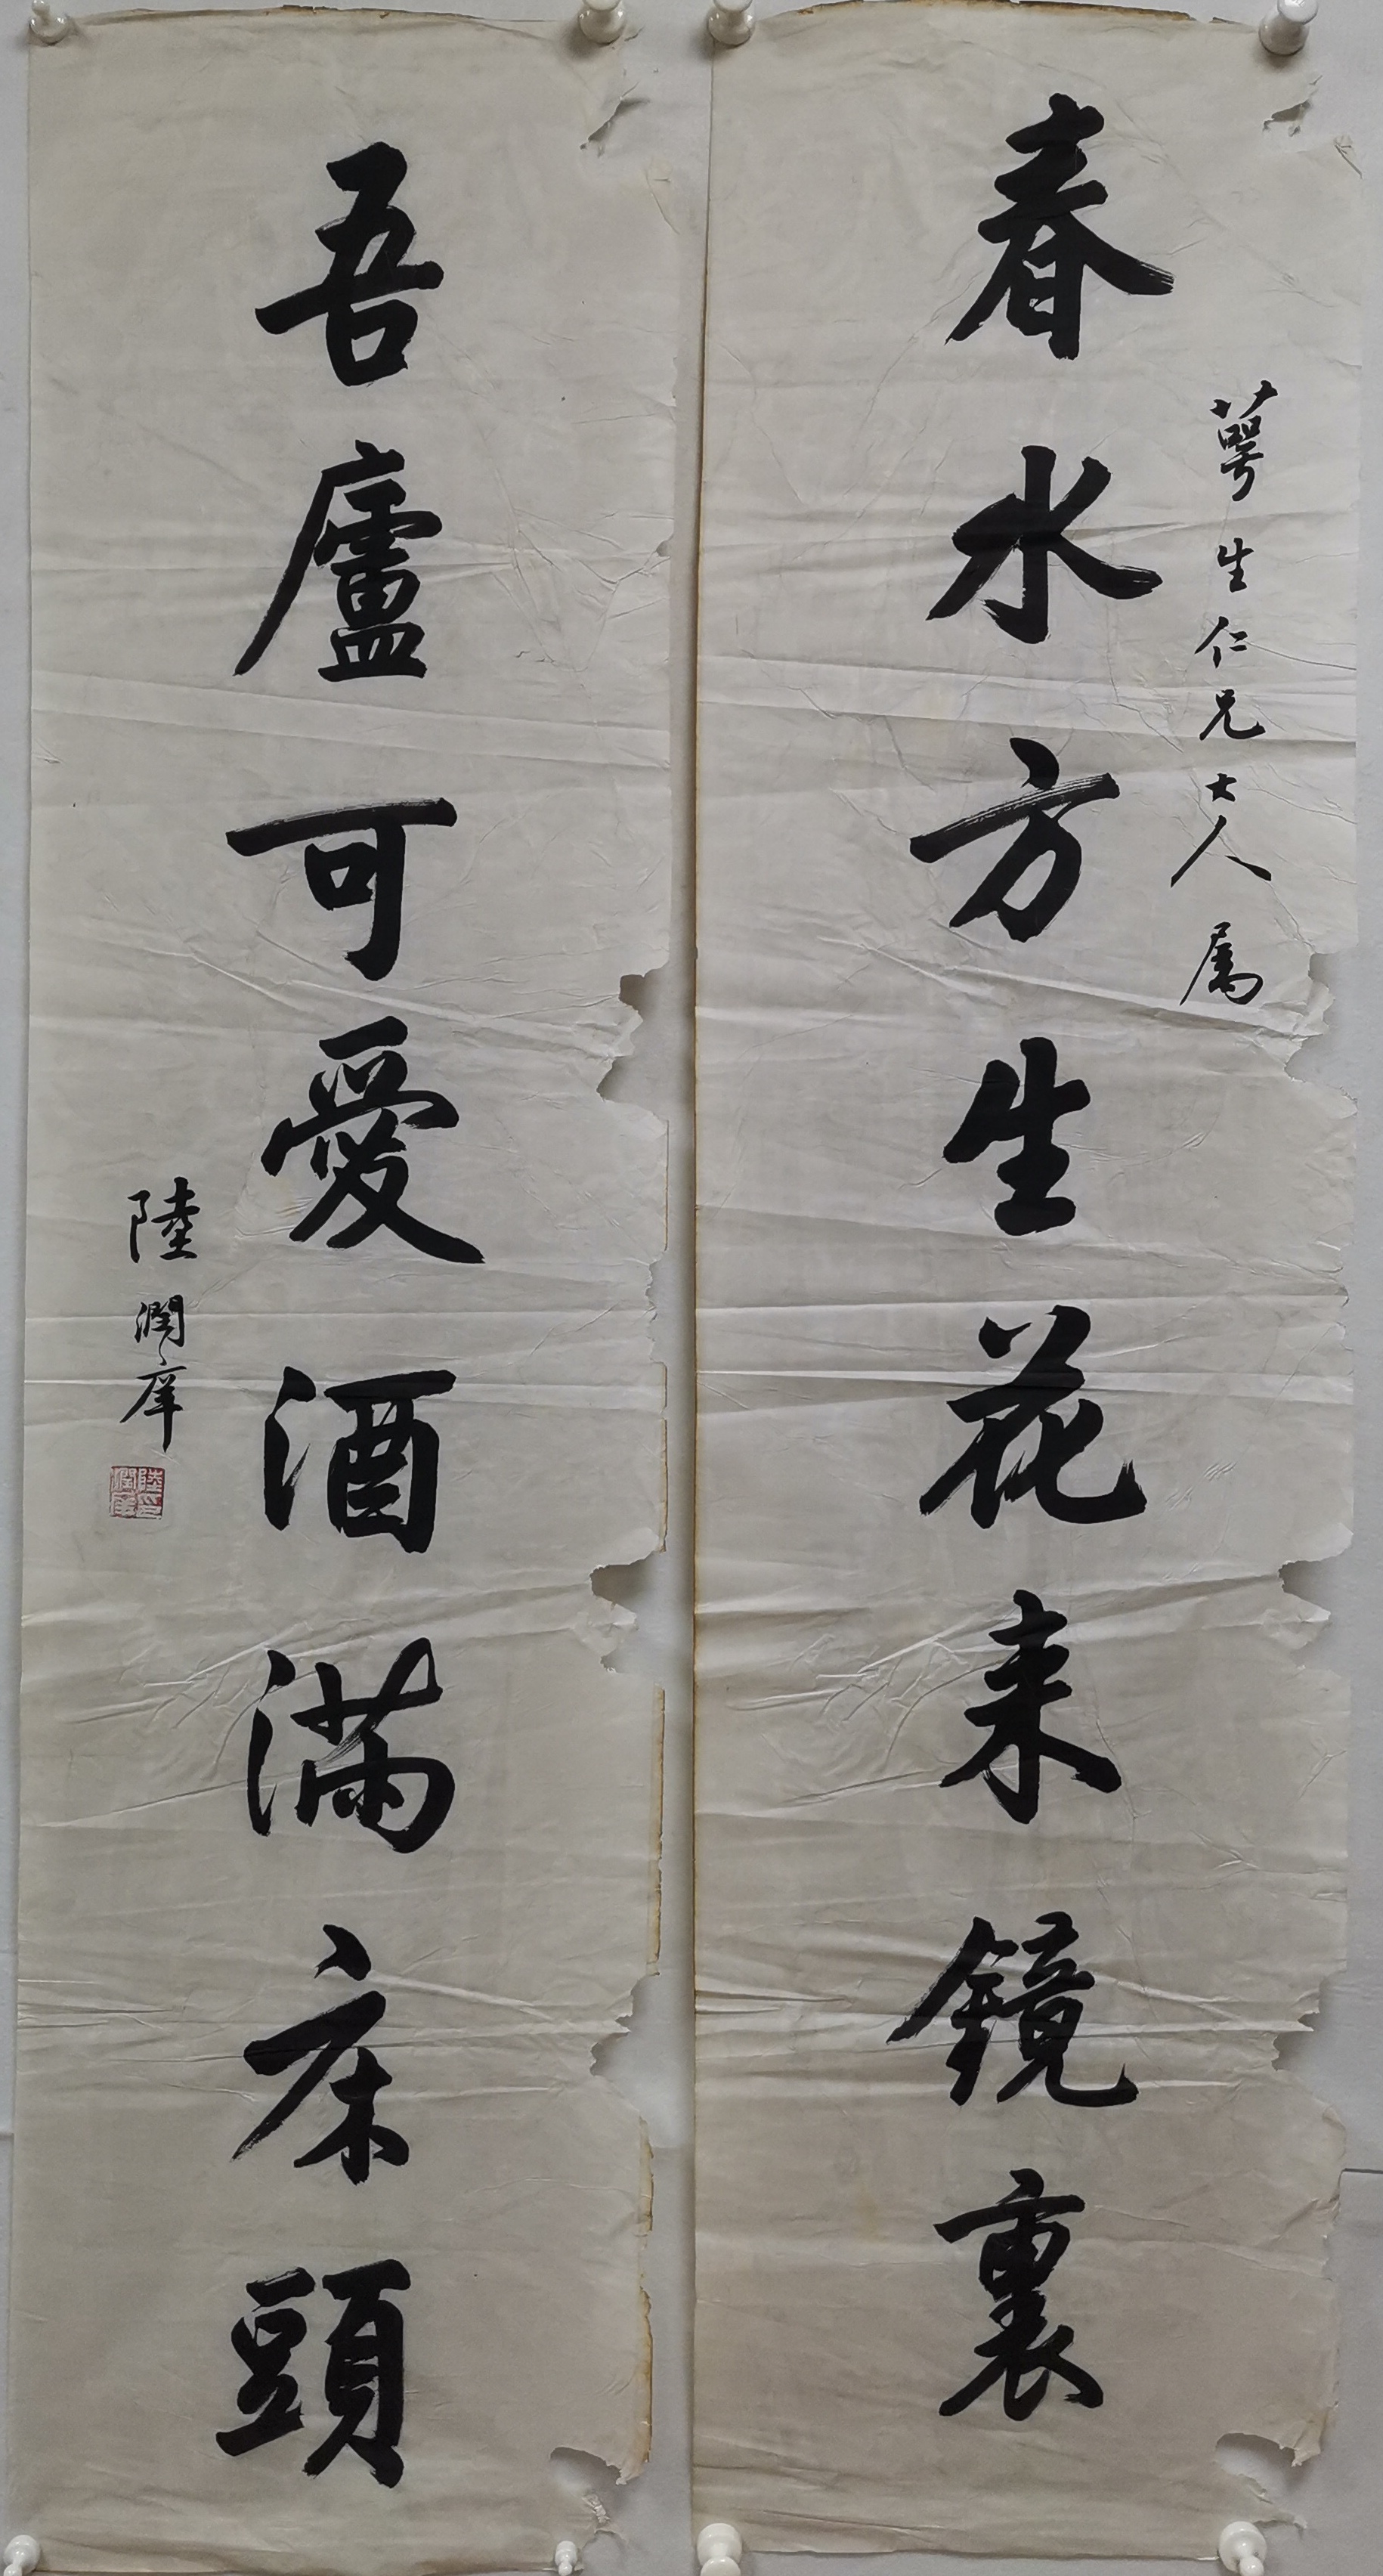 萼生仁兄大人属
春水方生花来鏡裏
吾廬可愛酒満床頭
陸潤庠
陸印潤庠